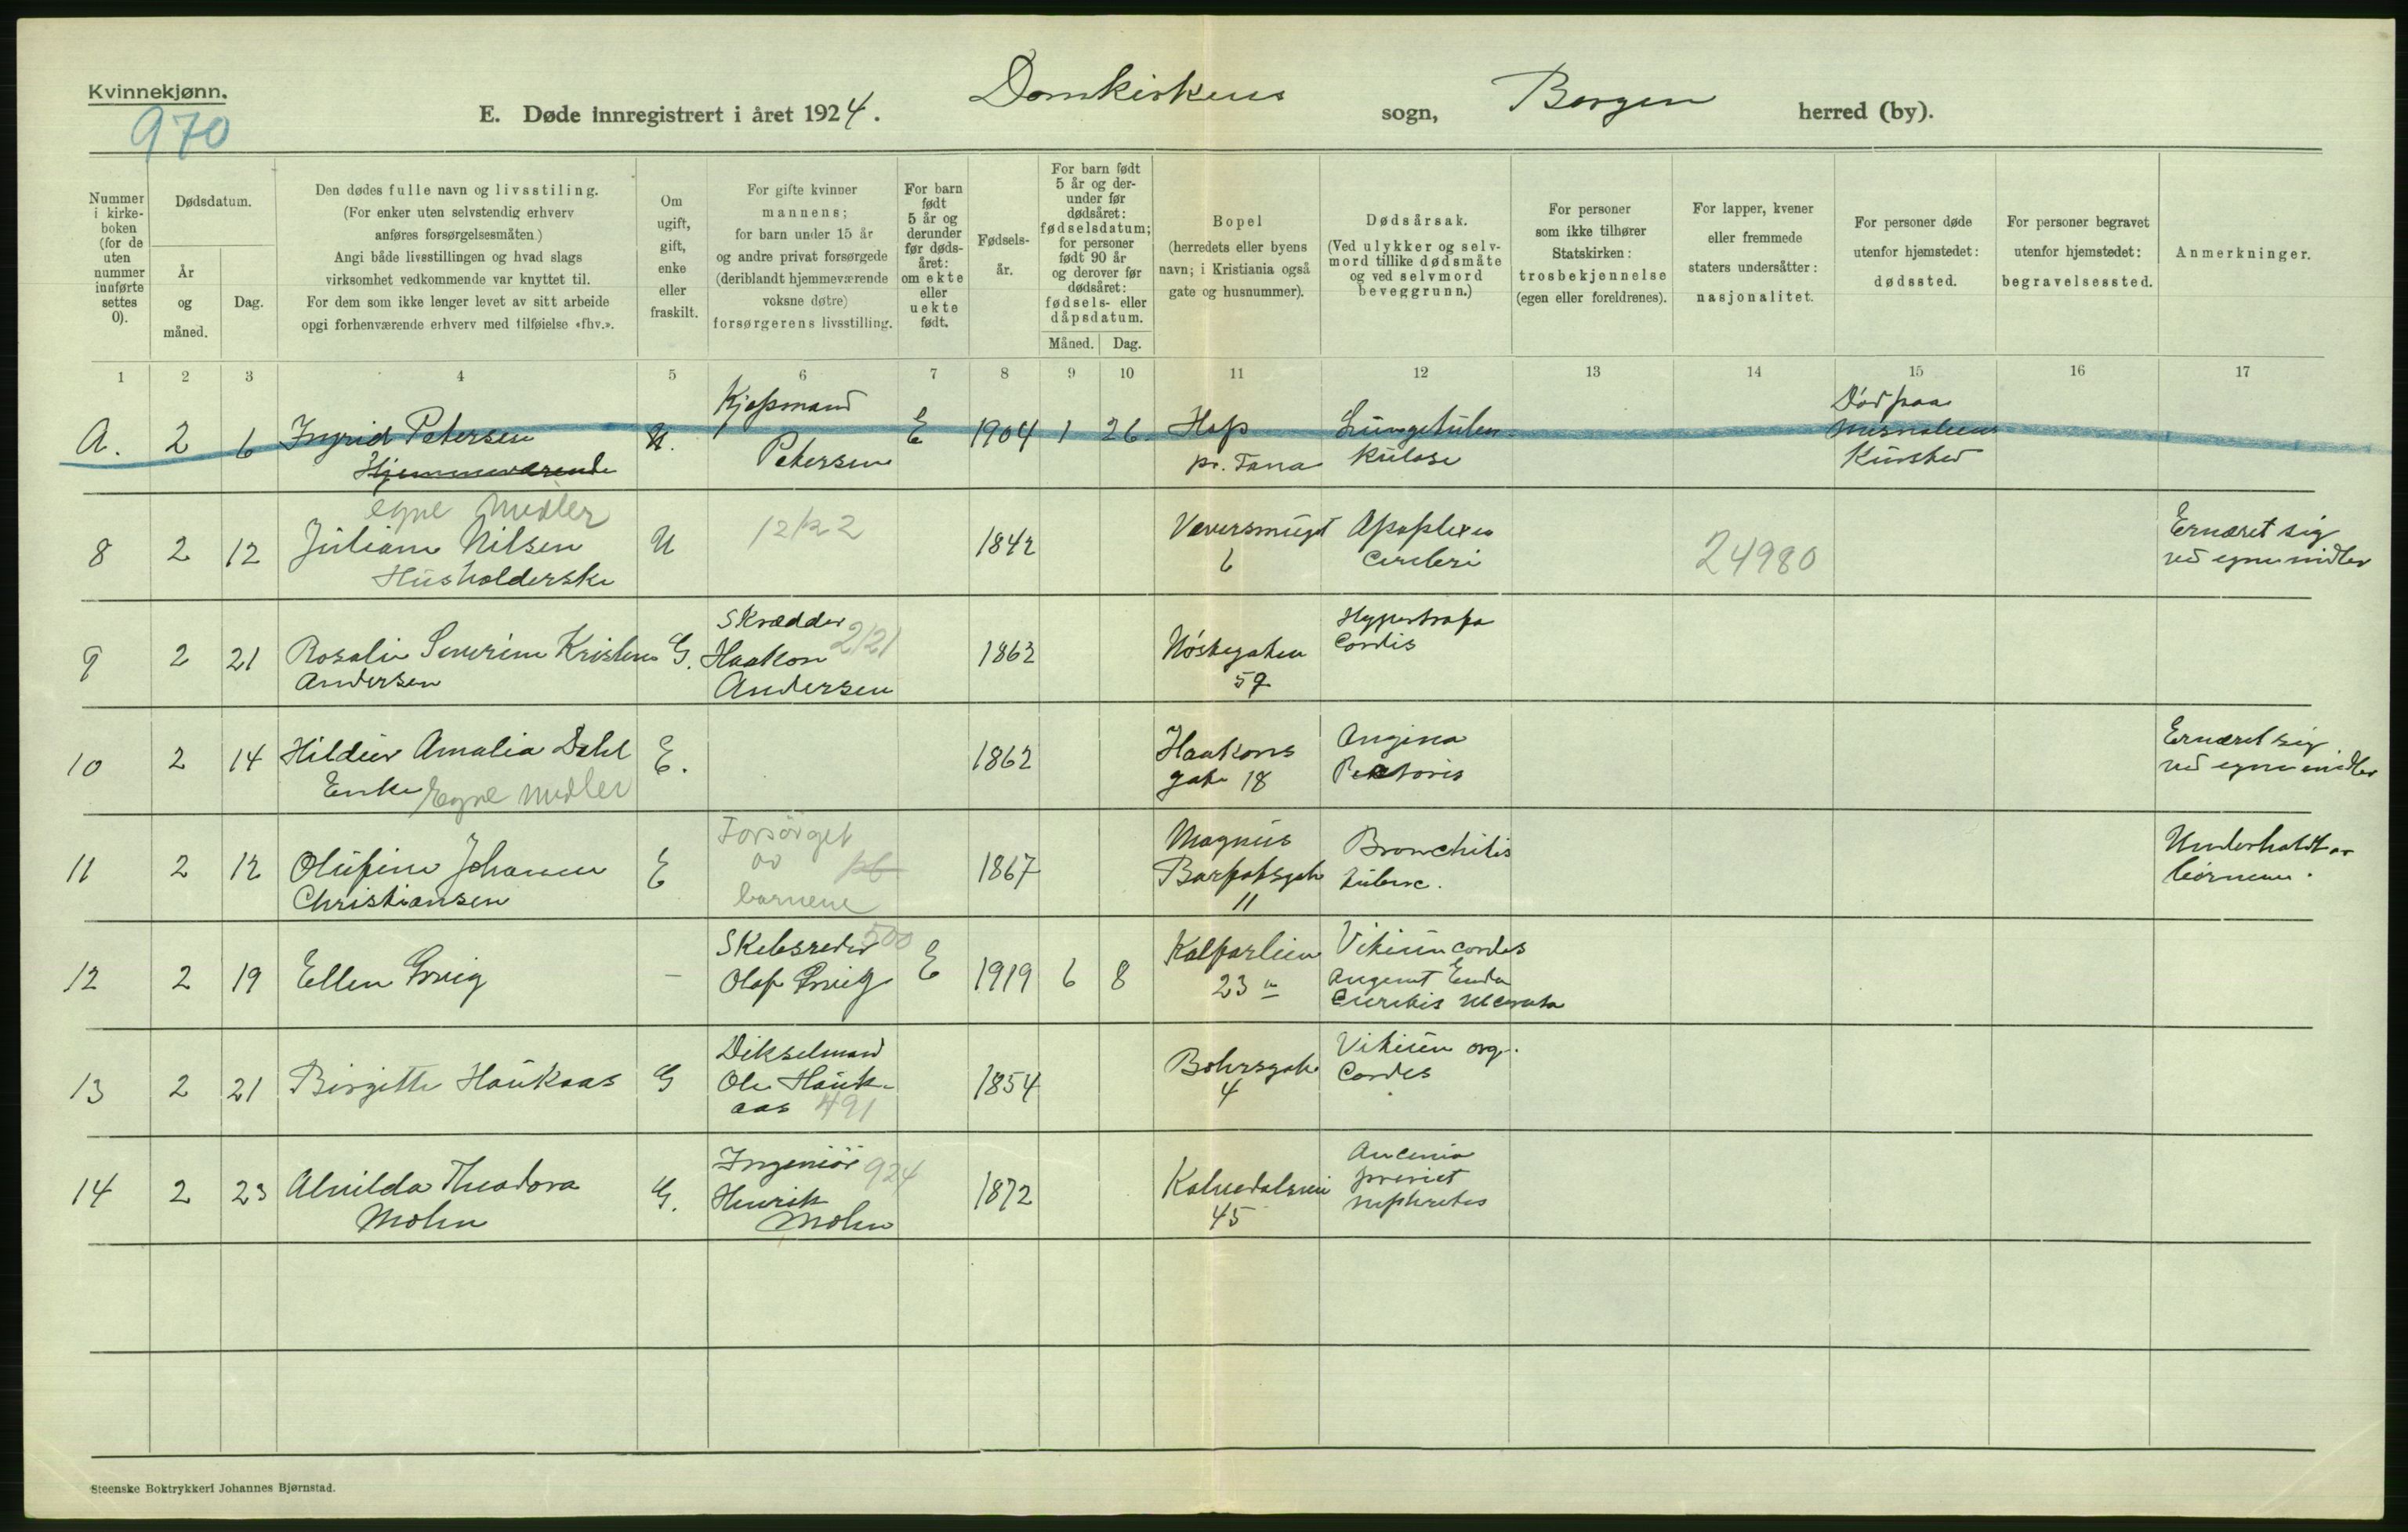 Kvinnekjønn.
970
E. Døde innregistrert i året 1924. Domkirkens sogn, Bergen herred (by).
Nummer i kirke-boken (for de uten nummer innførte settes 0).
Dødsdatum.
År og måned.
Dag.
Den dødes fulle navn og livsstiling.
(For enker uten selvstendig erhverv
anføres forsørgelsesmåten)
Angi både livsstillingen og hvad slags
virksomhet vedkommende var knyttet til.
For dem som ikke lenger levet av sitt arbeide
opgi forhenværende erhverv med tilføielse «fhv.».
Om
ugift,
gift,
enke
eller
fraskilt.
For gifte kvinner
mannens;
for barn under 15 år
og andre privat forsørgede
(deriblandt hjemmeværende
voksne døtre)
forsørgerens livsstilling.
For barn
født
5 år og
derunder
før døds-
året:
om ekte
eller
uekte
født.
Fødsels-
år.
For barn født
5 år og der-
under før
dødsåret:
fødselsdatum;
for personer
født 90 år
og derover før
dødsåret:
fødsels- eller
dåpsdatum.
Måned. Dag.
Bopel
(herredets eller byens
navn; i Kristiania også
gate og husnummer).
Dødsårsak.
(Ved ulykker og selv-
mord tillike dødsmåte
og ved selvmord
beveggrunn.)
For personer
som ikke tilhører
Statskirken:
trosbekjennelse
(egen eller foreldrenes).
For lapper, kvener
eller fremmede
staters undersåtter:
nasjonalitet.
For personer døde
utenfor hjemstedet:
dødssted.
For personer begravet
utenfor hjemstedet:
begravelsessted.
Anmerkninger.
1 2 3 4 5 6 7 8 9 10 11 12 13 14 15 16 17
A. 2 6 Ingrid Petersen
Hjemmeværende
U. Kjøpmand
Petersen
E 1904 1 26 Hop
pr. Fana
Lungetuber-
kulose
Død paa
Kursted
egne midler
8 2 12 Juliane Nilsen
Husholderske
U 12/22 1842 Væversmuget
6
Apoplexia
Cerebri
24980
Ernæret sig
ved egne midler
9 2 21 Rosalie Severine Kristine
Andersen
G. Skrædder
Haakon 2/21
Andersen
1863 Nöstegaten
59
Hypertrofia
Cordis
10 2 14 Hildur Amalia Dahl
Enke Egne midler
E. 1862 Haakons
gate 18
Angina
Pectoris
Ernæret sig
ved egne midler
11 2 12 Olufine Johanne
Christiansen
E Forsörget
av
barnene
1867 Magnus
Barfotsgate
11
Bronchitis
tuberc.
Underholdt av
börnene.
12 2 19 Ellen Grieg
- Skibsreder 500
Olaf Grieg
E 1919 6 8 Kalfarlien
23 a
Vitium cordis
Endo
13 2 21 Birgitte Haukaas
G Dikselmand
Ole Hauk-
aas 491
1854 Bohrsgate
4
Vitium org.
Cordis
14 2 23 Alvilda Theodora
Mohn
G. Ingeniör 924
Henrik
Mohn
1872 Kalvedalsvei
45
nephritis
Steenske Boktrykkeri Johannes Bjørnstad.